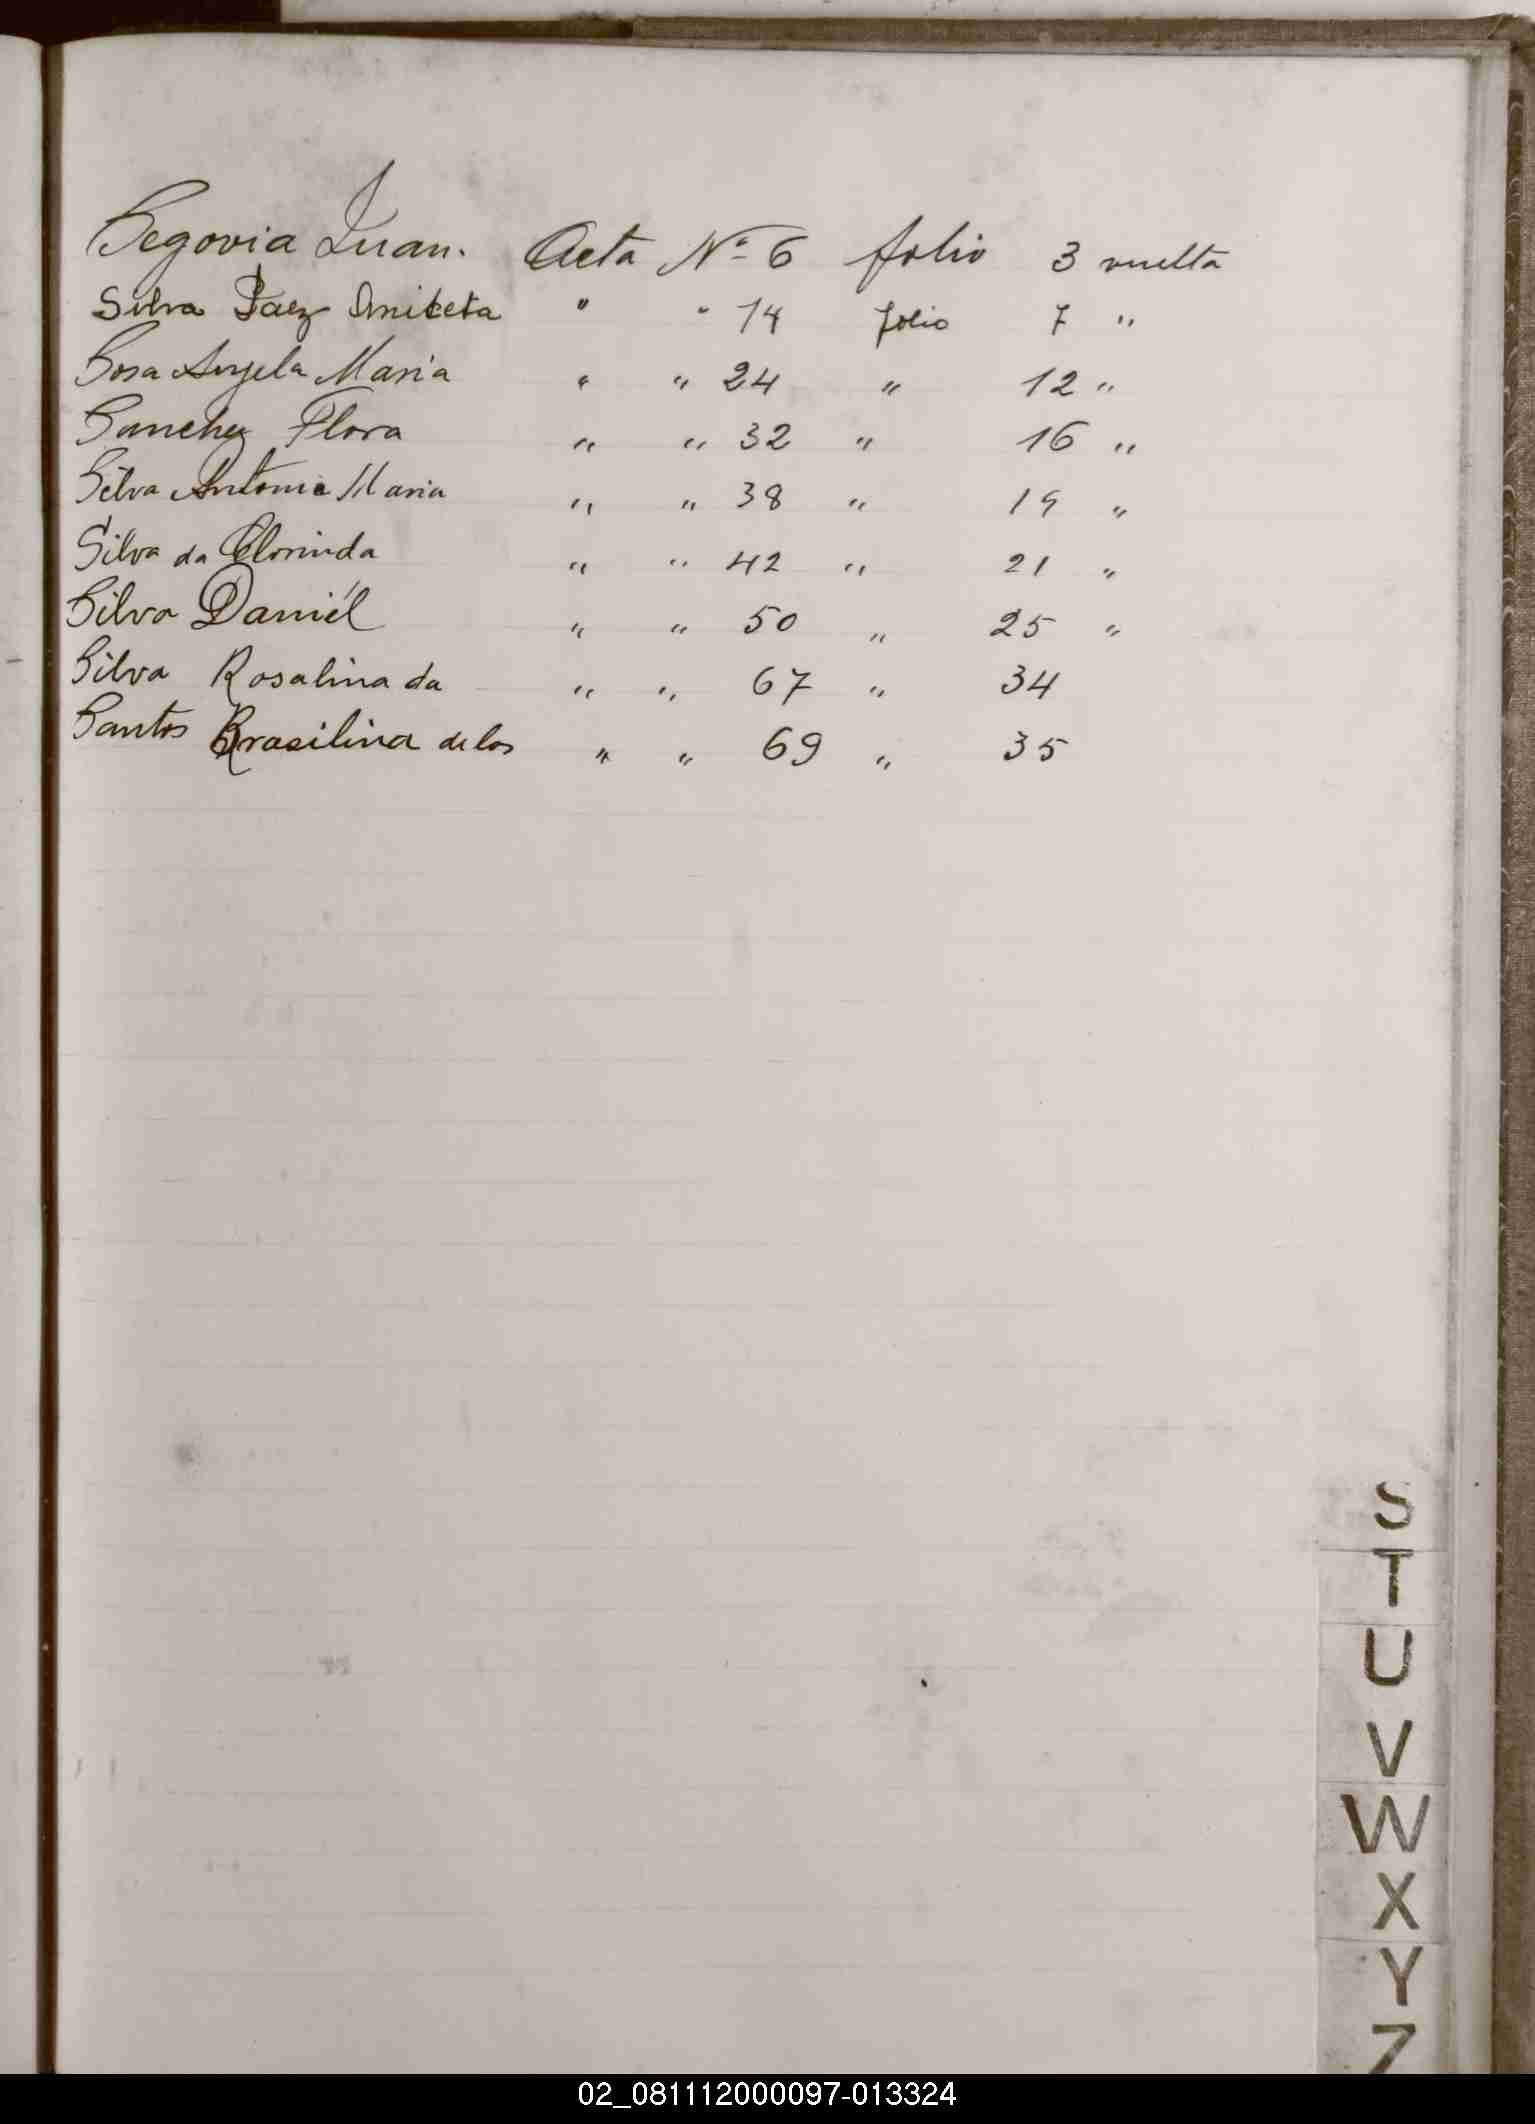 Segovia Juan. Acta Nº 6 folio 3 vuelta
Silva Paez Aniceta " " 14 folio 7 "
Sosa Angela Maria " " 24 " 12 "
Sanchez Flora " " 32 " 16 "
Silva Antonia Maria " " 38 " 19 "
Silva da Clorinda " " 42 " 21 "
Silva Daniél " " 50 " 25 "
Silva Rosalina da " " 67 " 34
Santos Brasilina de los " " 69 " 35
S
T
U
V
W
X
Y
Z
02_081112000097-013324